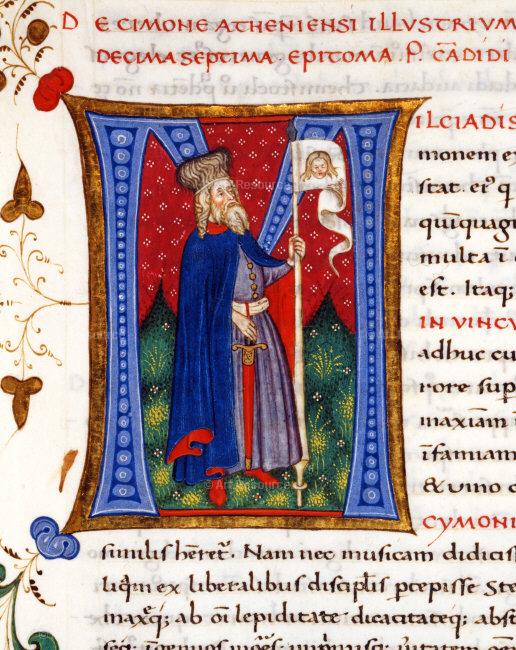 DE CIMONE ATHENIENSI ILLVSTRIVM
DECIMA SEPTIMA EPITOMA P. CĀDIDI
MILCIADIS
monem ex
stat. er̄ q
qūquagi
multa ī
est. Itaq;
IN VINCV
adhuc cu
rore sup
maxīam ī
īfamiam
& uino c
CYMONI
similis hēret̄. Nam nec musicam didicis
ex liberalibus discipl̄is p̄cepisse Ste
ab oī lepiditate dicacitateq; abst